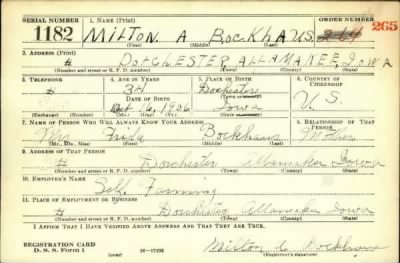 SERIAL NUMBER 1. NAME (Print) ORDER NUMBER
1182 MILTON A BOCKHAUS 265
(First) (Middle) (Last)
2. ADDRESS (Print)
# DORCHESTER ALLAMAKEE, IOWA
(Number and street or R. F. D. number) (Town) (County) (State)
3. TELEPHONE 4. AGE IN YEARS 5. PLACE OF BIRTH 6. COUNTRY OF CITIZENSHIP
34 Dorchester
DATE OF BIRTH
Oct 16, 1906 Iowa U. S.
(Exchange) (Number) (Mo.) (Day) (Yr.) (State or country)
7. NAME OF PERSON WHO WILL ALWAYS KNOW YOUR ADDRESS 8. RELATIONSHIP OF THAT PERSON
Mrs Frida Bockhaus Mother
(Mr., Mrs., Miss) (First) (Middle) (Last)
9. ADDRESS OF THAT PERSON
# Dorchester Allamakee Iowa
(Number and street or R. F. D. number) (Town) (County) (State)
10. EMPLOYER'S NAME
Self Farming
11. PLACE OF EMPLOYMENT OR BUSINESS
# Dorchester Allamakee Iowa
(Number and street or R. F. D. number) (Town) (County) (State)
I AFFIRM THAT I HAVE VERIFIED ABOVE ANSWERS AND THAT THEY ARE TRUE.
REGISTRATION CARD
D. S. S. Form 1 (over) Milton A Bockhaus
(Registrant's signature)